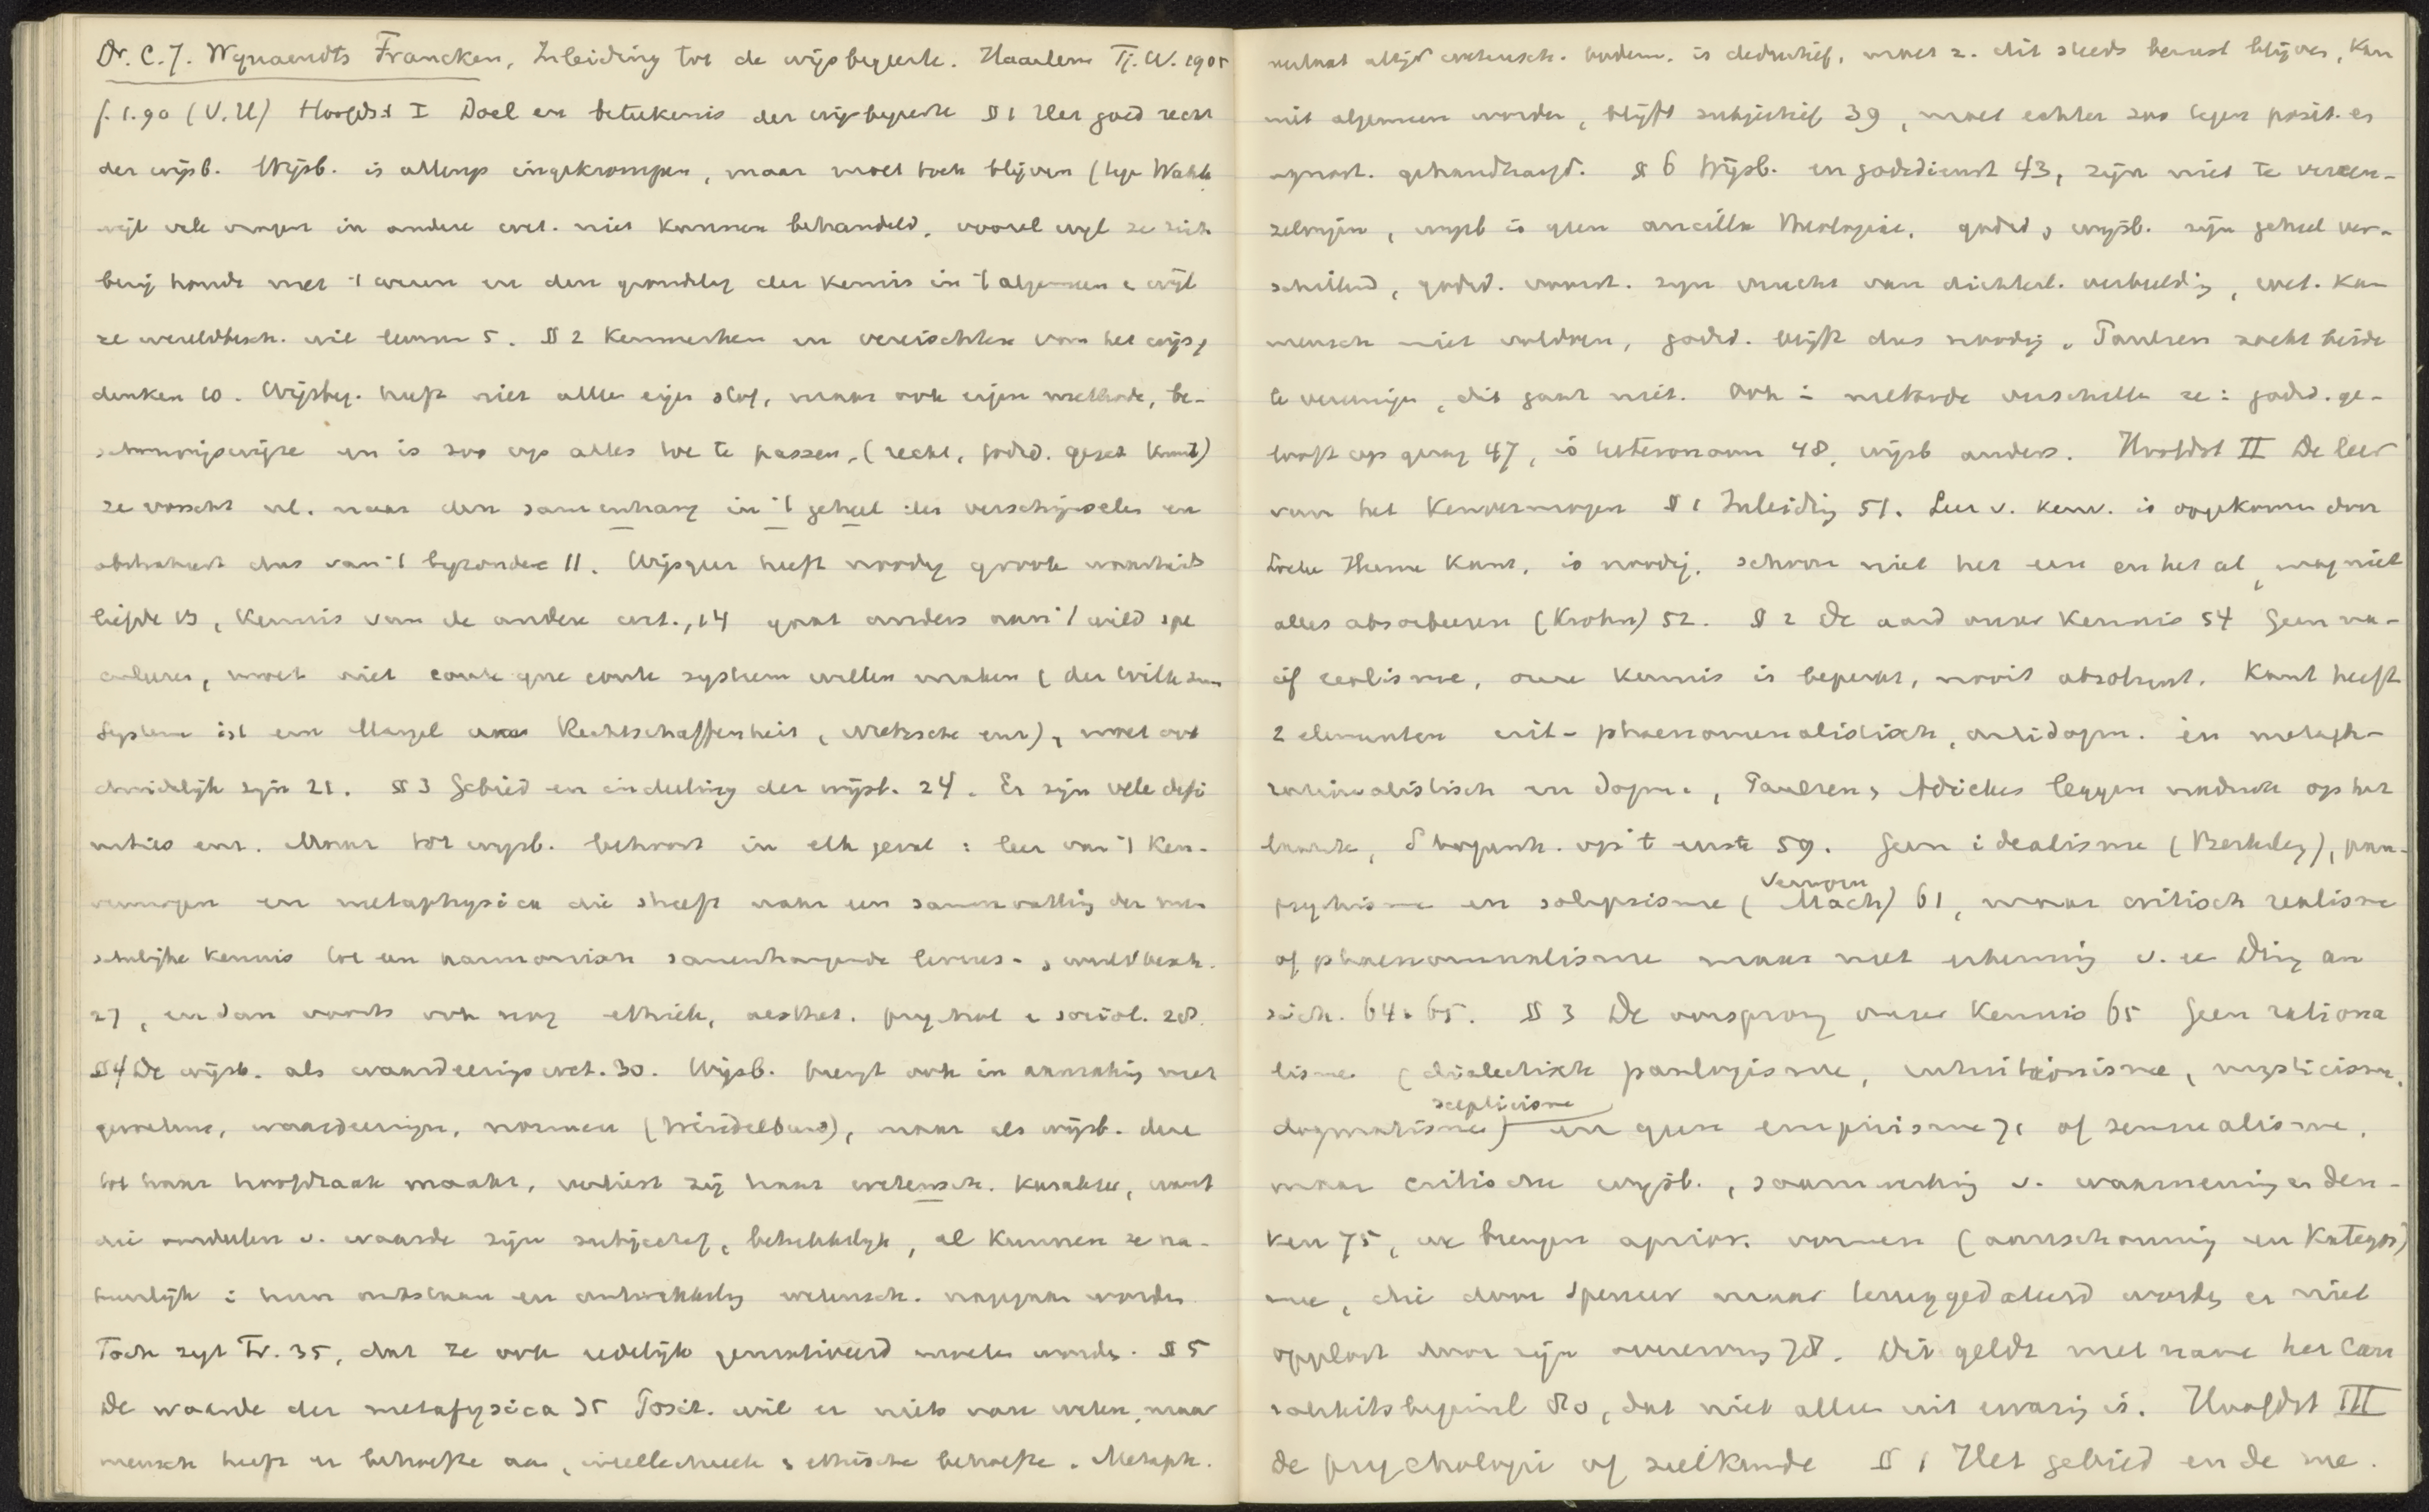 Dr. C. J. Wynaendts Francken, Inleiding tot de wijsbegeerte. Haarlem Tj. W. 1905
f. 1.90 (V.U) Hoofdst I Doel en beteekenis der wijsbegeerte § 1 Het goed recht
der wijsb. Wijsb. is allengs ingekrompen, maar moet toch blijven (tege Wahle
wijl vele vragen in andere wet. niet kunnen behandeld, vooral wijl ze zich
bezig houdt met 't wezen en den grondslag der kennis in 't algemeen e wijl
ze wereldbesch. wil leveren 5. § 2 Kenmerken en vereischten van het wijsg
denken 10. Wijsbeg. heeft niet alleen eigen stof, maar ook eigen methode, be-
schouwingswijze en is zoo op alles toe te passen, (recht, godsd. gesch kunst)
ze vorscht nl. naar den samenhang in 't geheel der verschijnselen en
abstraheert dus van 't byzondere 11. Wijsgeer heeft noodig groote waarheids
liefde 13, kennis van de andere wet., 14 gaat anders aan 't wild spe
culeeren, moet niet coute que coute systeem willen maken (der Wille zum
System ist ein Mangel an Rechtschaffenheit, Nietzsche enz), moet ook
duidelijk zijn 21. § 3 Gebied en indeeling der wijsb. 24. Er zijn vele defi
nities enz. Maar tot wijsb. behoort in elk geval : leer van 't ken-
vermogen en metaphysica die streeft naar een samenvatting der men
schelijke kennis tot een harmonisch samenhangende levens- , wereldbesch.
27, en dan voorts ook nog ethiek, aesthet. psychol e sociol. 28.
§ 4 De wijsb. als waardeeringswet. 30. Wijsb. brengt ook in aanraking met
gevoelens, waardeeringen, normen (Windelband), maar als wijsb. deze
tot haar hoofdzaak maakt, verliest zij haar wetensch. karakter, want
die oordeelen v. waarde zijn subjectief, betrekkelijk, al kunnen ze na-
tuurlijk i hun ontstaan en ontwikkeling wetensch. nagegaan worden
Toch zegt Fr. 35, dat ze ook redelijk gemotiveerd moeten worden. § 5
De waarde der metafysica 35 Posit. wil er niets van weten, maar
mensch heeft er behoefte aan, intellectueele , ethische behoefte. Metaph.
altijd wetensch. is deductief, moet z. dit steeds bewust blijven, kan
niet algemeen worden, blijft subjectief 39, moet echter zoo tegen posit. en
agnost. gehandhaafd. § 6 Wijsb. en godsdienst 43, zijn niet te vereen-
zelvigen, wijsb is geen ancilla theologiae. godsd , wijsb. zijn geheel ver-
schillend, godsd. voorst. zijn vrucht van dichterl. verbeelding, wet. kan
mensch niet voldoen, godsd. blijft dus noodig. Paulsen zoekt beide
te vereenigen, dit gaat niet. Ook in methode verschillen ze : godsd. ge-
looft op gezag 47, is heteronoom 48, wijsb anders. Hoofdst II De leer
van het kenvermogen § 1 Inleiding 51. Leer v. kenv. is opgekomen door
Locke Hume Kant, is noodig, schoon niet het een en het al, mag niet
alles absorbeeren (Krohn) 52. § 2 De aard onzer kennis 54 Geen na-
ief realisme, onze kennis is beperkt, nooit absoluut. Kant heeft
2 elementen crit- phaenomenalistisch, antidogm. en metaph-
rationalistisch en dogm., Paulsen , Adickes leggen nadruk op het
laatste, Schopenh. op 't eerste 59. Geen idealisme (Berkeley), pan-
psychisme en solipsisme (Verworn Mach) 61, maar critisch realisme
of phaenomenalisme maar met erkenning v. ee Ding an
sich. 64. 65. § 3 De oorsprong onzer kennis 65 Geen rationa
lisme (dialectisch panlogisme, intuitionisme, mysticisme,
dogmatisme) scepticisme en geen empirisme 71 of sensualisme,
maar critische wijsb., samenwerking v. waarneming en den-
ken 75, we brengen aprior. vormen (aanschouwing en kategor)
mee, die door Spencer maar teruggedateerd worden en niet
opgelost door zijn overerving 78. Dit geldt met name het cau
saliteitsbeginsel 80, dat niet alleen uit ervaring is. Hoofdst III
de psychologie of zielkunde § 1 Het gebied en de me.